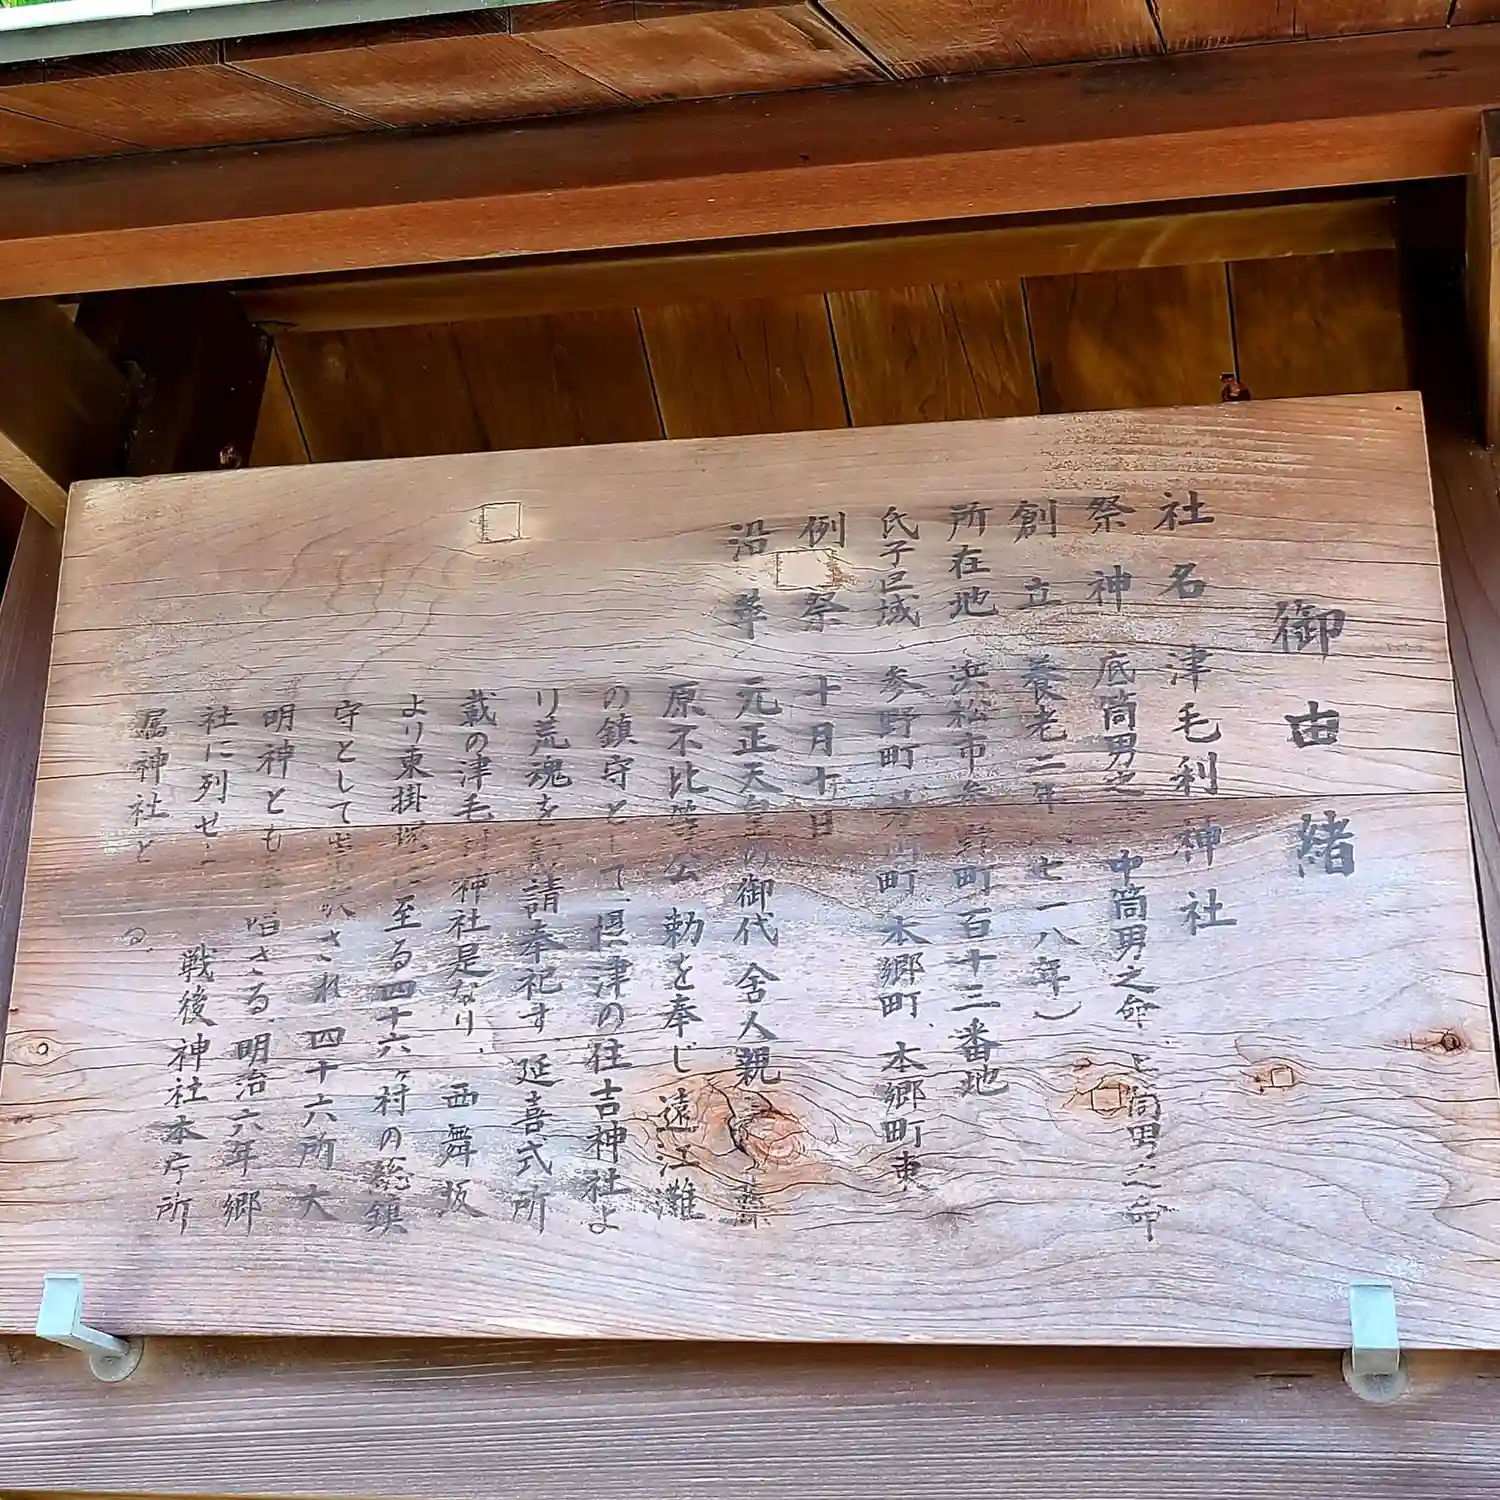 御由緒
社名 津毛利神社
祭神 底筒男之 中筒男之命 上筒男之命
創立 養老二年 七一八年)
所在地 浜松市参野町百十三番地
氏子区域 参野町 芳川町 本郷町 本郷町東
例祭 十月十 日
沿革 元正天皇の御代 舎人親 藤
原不比等公 勅を奉じ 遠江灘
の鎮守として 摂津の住吉神社よ
り荒魂を 請奉祀す 延喜式所
載の津毛利神社是なり、 西舞坂
より東掛塚に至る四十六ヶ村の総鎮
守として崇 され 四十六所大
明神とも 唱さる 明治六年郷
社に列せ 戦後神社本庁所
属神社と る。